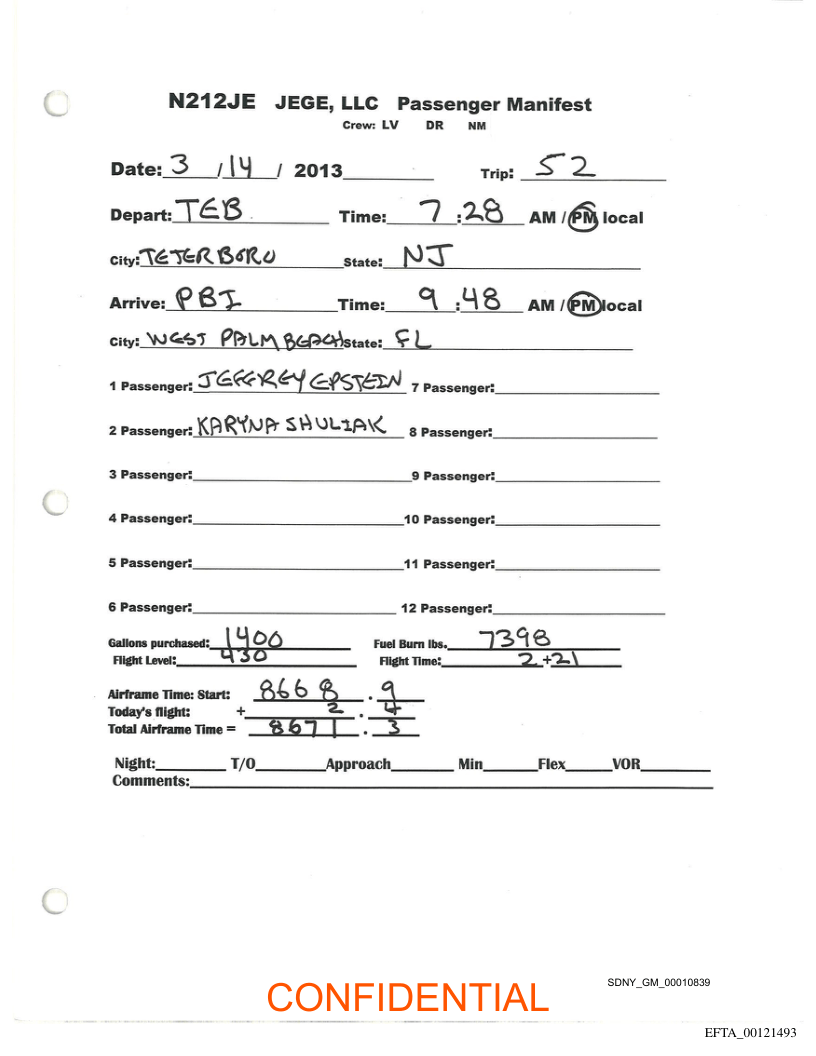 N212JE JEGE, LLC Passenger Manifest
Crew: LV DR NM
Date: 3 /14 / 2013 Trip: 52
Depart: TEB Time: 7 :28 AM / PM local
City: TETERBORO State: NJ
Arrive: PBI Time: 9 :48 AM / PM local
City: WEST PALM BEACH State: FL
1 Passenger: JEFFREY EPSTEIN 7 Passenger:
2 Passenger: KARYNA SHULIAK 8 Passenger:
3 Passenger: 9 Passenger:
4 Passenger: 10 Passenger:
5 Passenger: 11 Passenger:
6 Passenger: 12 Passenger:
Gallons purchased: 1400 Fuel Burn lbs. 7398
Flight Level: 430 Flight Time: 2+21
Airframe Time: Start: 8668 . 9
Today's flight: + 2 . 4
Total Airframe Time = 8671 . 3
Night: T/O Approach Min Flex VOR
Comments:
SDNY_GM_00010839
CONFIDENTIAL
EFTA_00121493